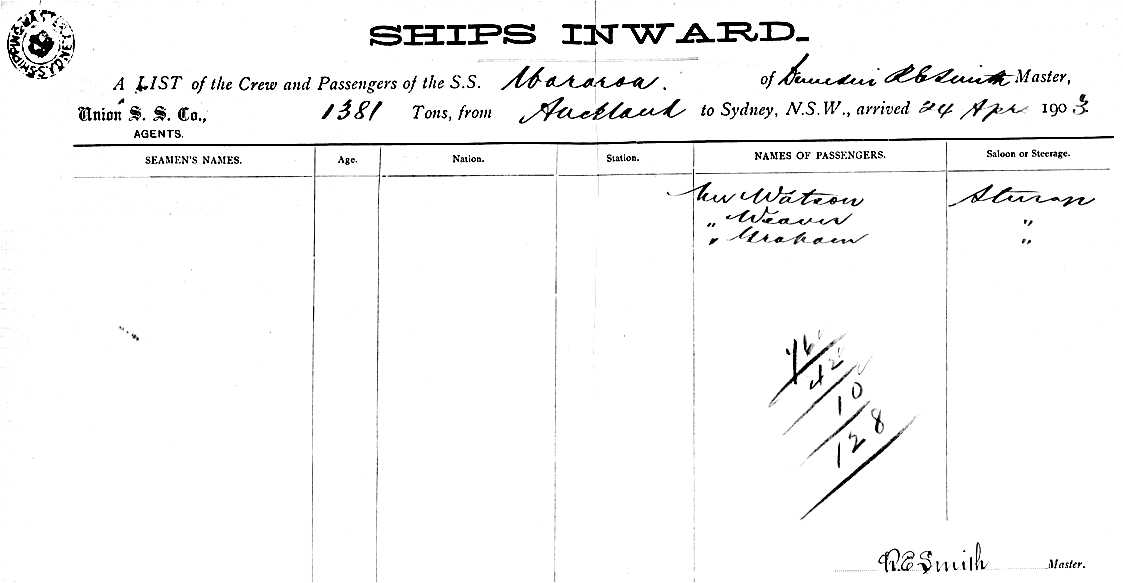 SHIPPING MASTER SYDNEY
SHIPS INWARD.
A LIST of the Crew and Passengers of the S.S. Wararoa. of Dunedin R E Smith Master,
Union S. S. Co., 1381 Tons, from Auckland to Sydney, N.S.W., arrived 24 Apr 1903
AGENTS.
SEAMEN'S NAMES. Age. Nation. Station. NAMES OF PASSENGERS. Saloon or Steerage.
Mr Watson Steerage
„ Weaver „
„ Graham „
42
10
128
R.E Smith Master.